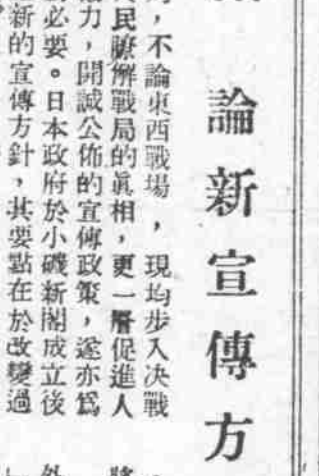 論新宣傳方
,不論東西戰場,現均步入决戰
民瞭解戰局的眞相,更一層促進人
力,開誠公佈的宣傳政策,遂亦爲
必要。日本政府於小磯新閣成立後
新的宣傳方針,其要點在於改變過